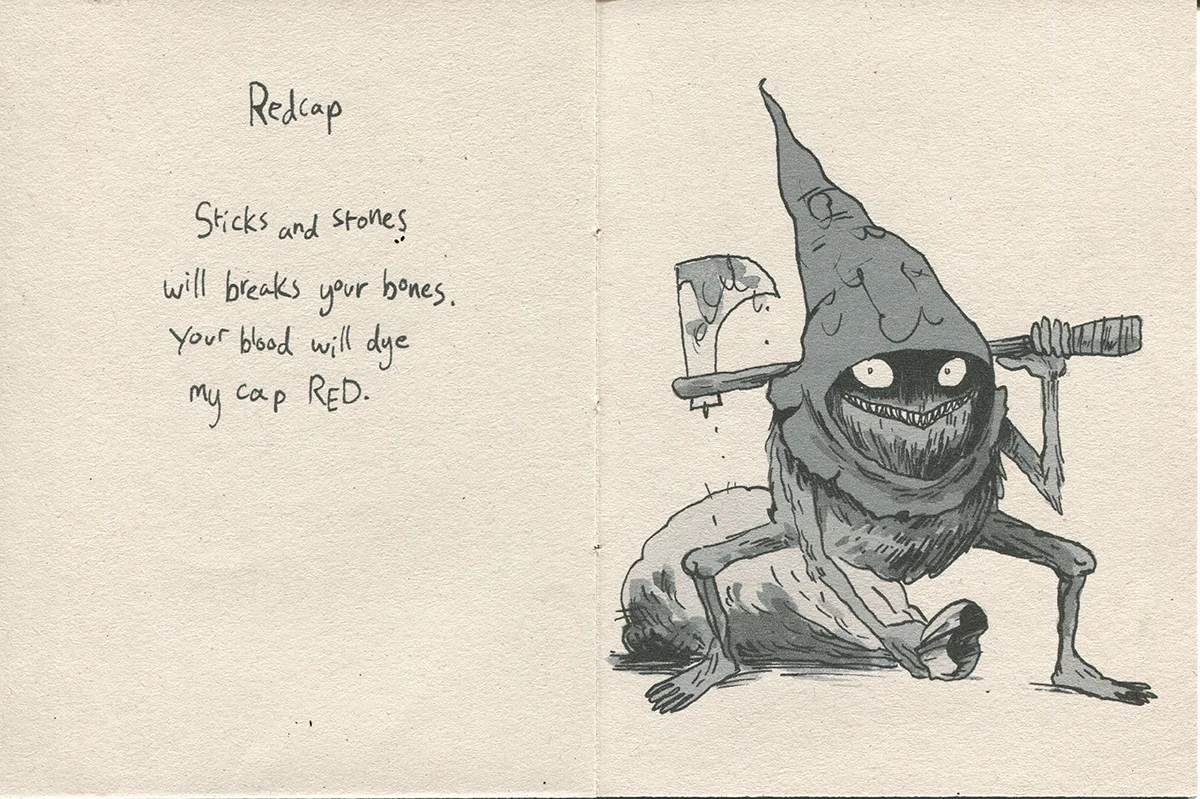 Redcap
Sticks and stones
will breaks your bones.
Your blood will dye
my cap RED.